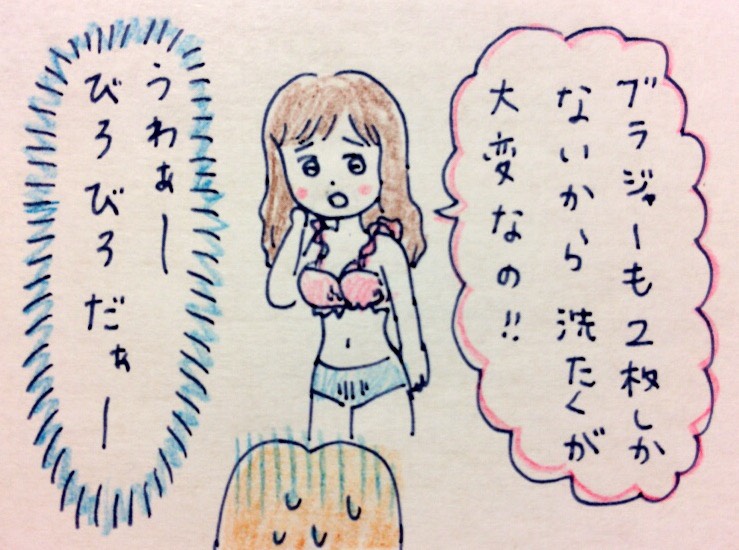 ブラジャーも2枚しか
ないから洗たくが
大変なの!!
うわぁー
びろびろだぁー